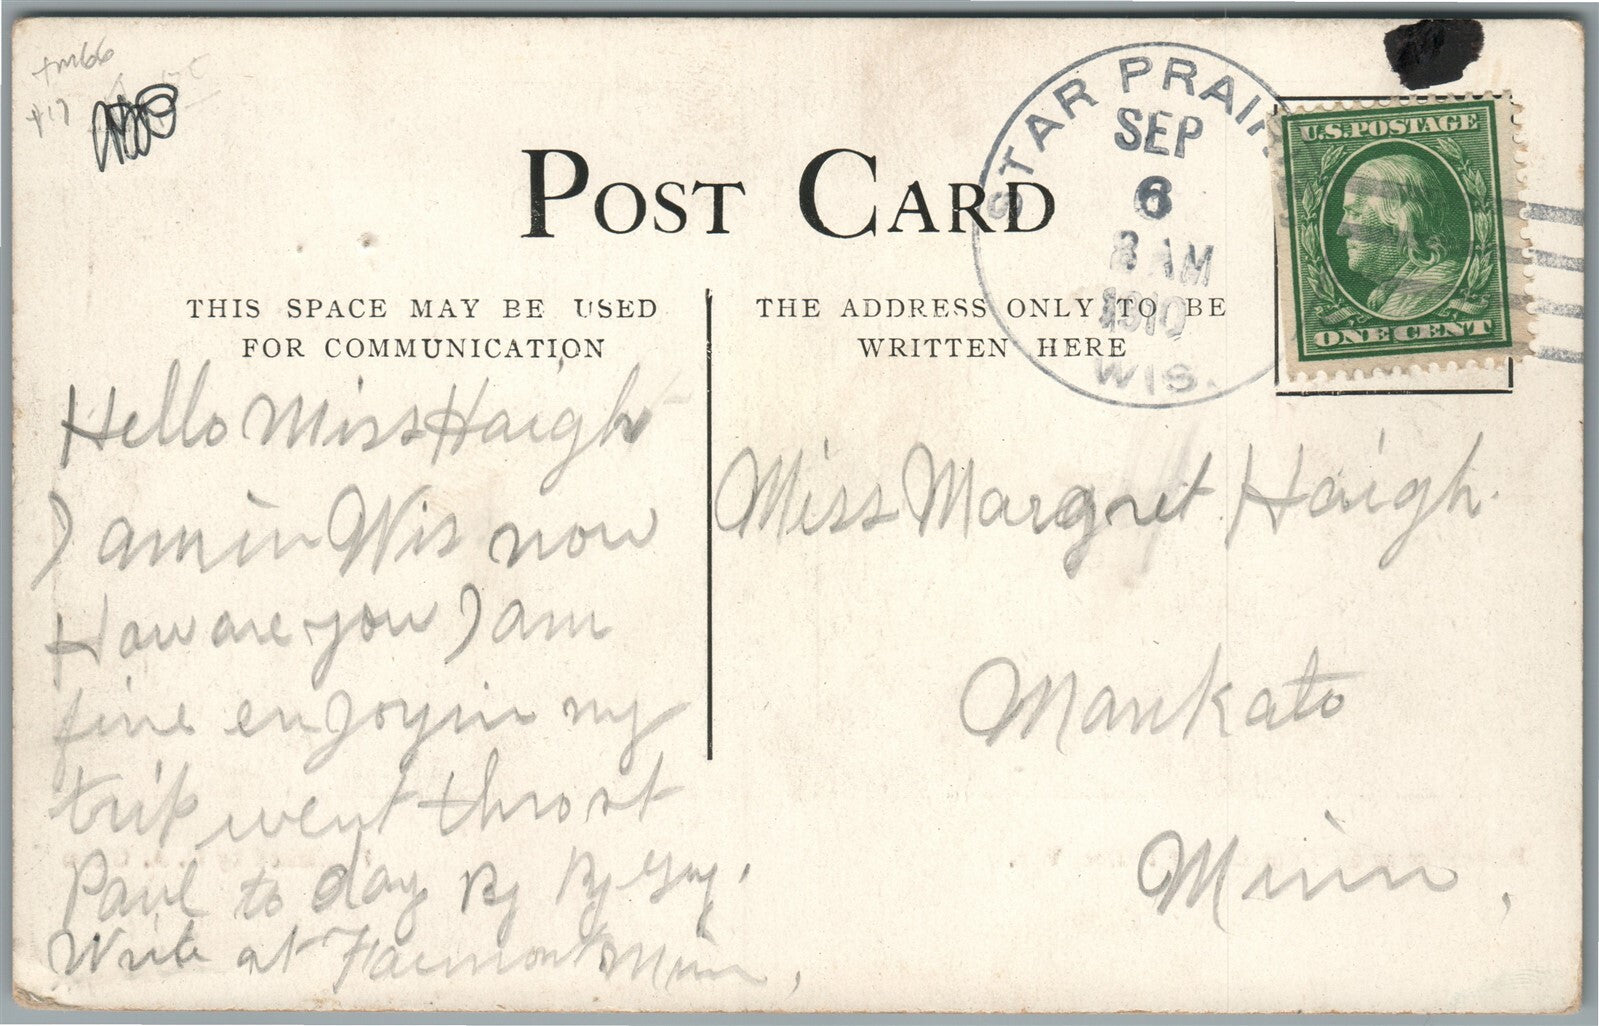 POST CARD
STAR PRAIR
SEP
6
8 AM
1910
WIS.
U.S. POSTAGE
ONE CENT
THIS SPACE MAY BE USED
FOR COMMUNICATION
THE ADDRESS ONLY TO BE
WRITTEN HERE
Hello Miss Haigh
I am in Wis now
How are you I am
fine enjoyin my
trip went thro st
Paul to day By By Guy.
Write at Fairmont Minn,
Miss Margret Haigh.
Mankato
Minn,